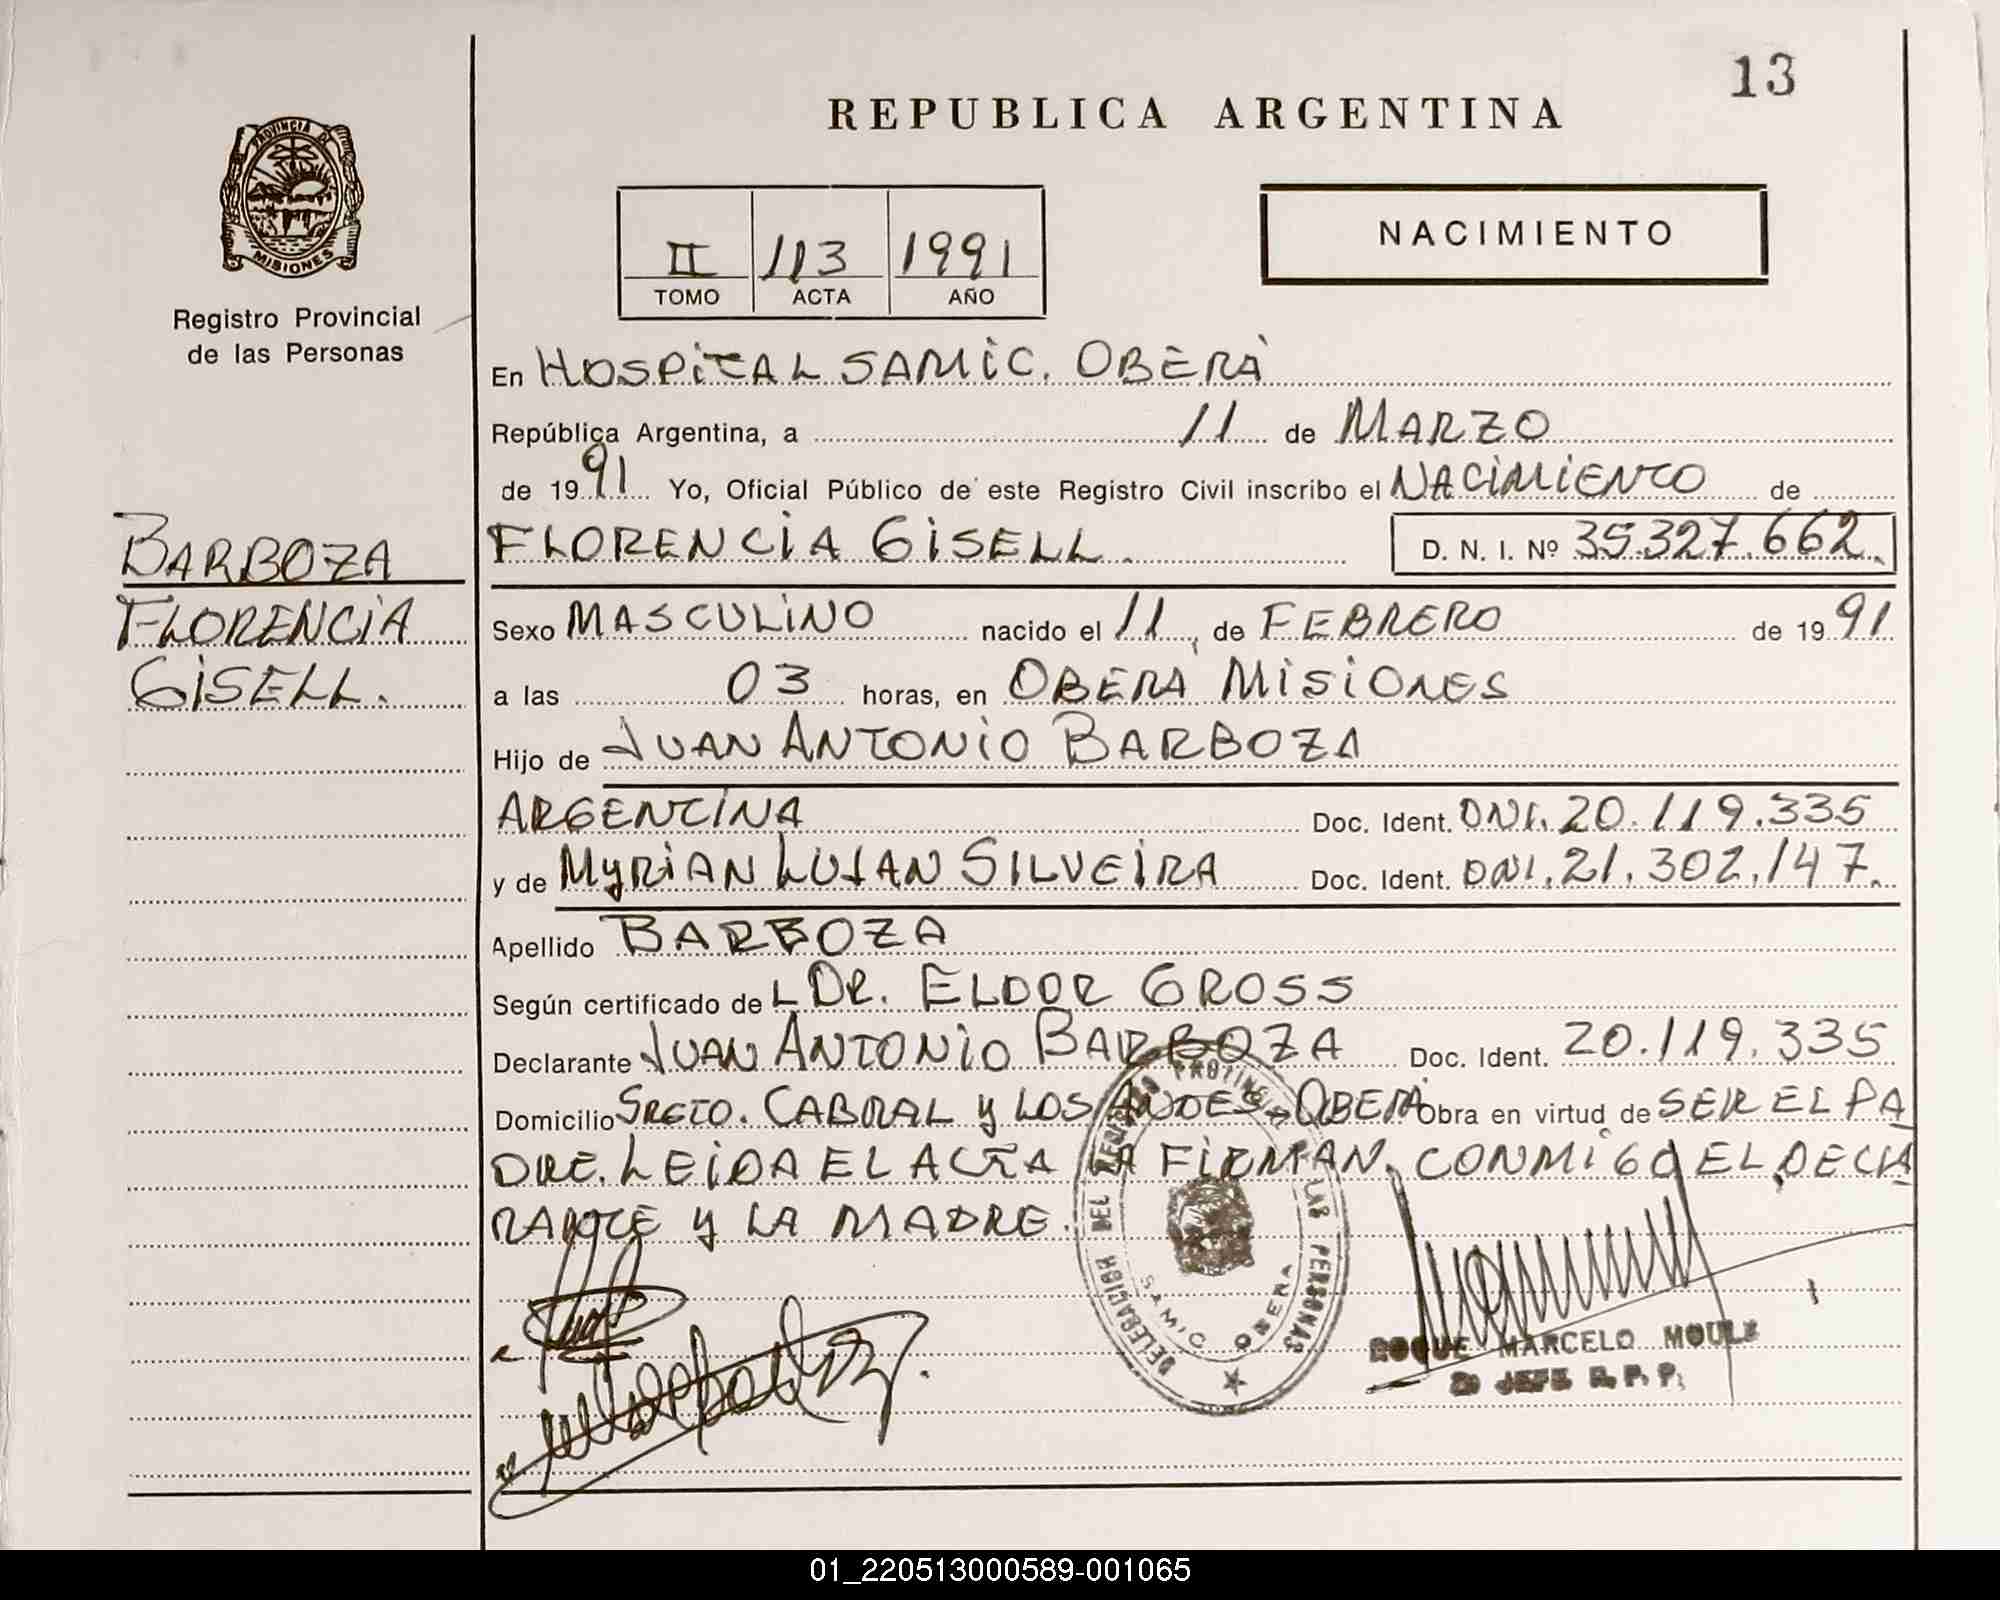 13
REPUBLICA ARGENTINA
PROVINCIA DE
MISIONES
Registro Provincial
de las Personas
II 113 1991
TOMO ACTA AÑO
NACIMIENTO
En HOSPITAL SAMIC. OBERÁ
República Argentina, a 11 de MARZO
de 1991 Yo, Oficial Público de este Registro Civil inscribo el NACIMIENTO de
BARBOZA
FLORENCIA
GISELL.
FLORENCIA GISELL. D. N. I. Nº 35.327.662.
Sexo MASCULINO nacido el 11, de FEBRERO de 1991
a las 03 horas, en OBERÁ MISIONES
Hijo de JUAN ANTONIO BARBOZA
ARGENTINA Doc. Ident. DNI. 20.119.335
y de MYRIAN LUJAN SILVEIRA Doc. Ident. DNI. 21.302.147.
Apellido BARBOZA
Según certificado de L DR. ELDOR GROSS
Declarante JUAN ANTONIO BARBOZA Doc. Ident. 20.119.335
Domicilio SRGTO. CABRAL y LOS ANDES - OBERÁ Obra en virtud de SER EL PA
DRE. LEIDA EL ACTA LA FIRMAN, CONMIGO EL DECLA
RANTE y LA MADRE.
DELEGACION DEL REGISTRO PROVINCIAL DE LAS PERSONAS
SAMIC OBERA
ROQUE MARCELO
JEFE R. P. P.
01_220513000589-001065